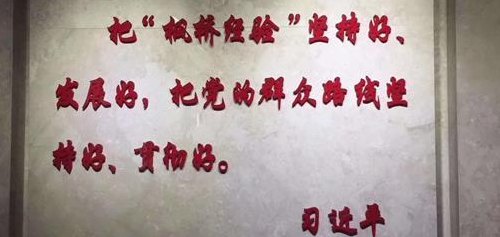 把“枫桥经验”坚持好、
发展好，把党的群众路线坚
持好、贯彻好。
习近平